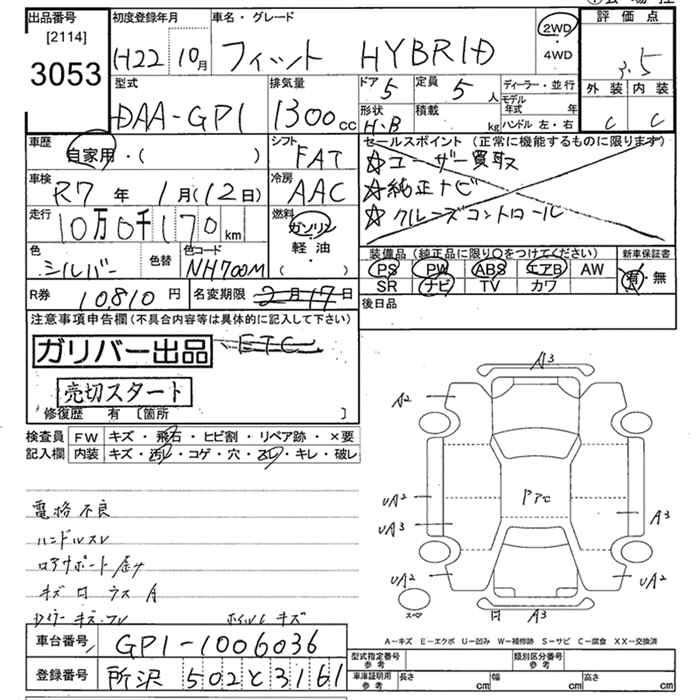 出品番号
[2114]
3053
初度登録年月
H22 10月
車名・グレード
フィット HYBRID
2WD
・
4WD
評価点
3.5
外装 内装
C C
型式
DAA-GP1
排気量
1300cc
ドア 5
定員 5人
形状 H.B
積載 kg
ディーラー・並行
モデル年式 年
ハンドル 左・右
車歴
自家用・( )
シフト
FAT
車検
R7年 1月(12日)
冷房
AAC
走行
10万0千170km
燃料
ガソリン
軽・油
( )
色
シルバー
色替
色コード
NH700M
R券 10,810円
名変期限 2月17日
セールスポイント (正常に機能するものに限ります)
☆ユーザー買取
☆純正ナビ
☆クルーズコントロール
装備品 (純正品に限り○をつけてください)
PS PW ABS エアB AW
SR ナビ TV カワ
新車保証書
有・無
後日品
注意事項申告欄 (不具合内容等は具体的に記入して下さい)
ガリバー出品
ETC
売切スタート
修復歴 有 [箇所 ]
検査員 FW キズ・飛石・ヒビ割・リペア跡・×要
記入欄 内装 キズ・汚レ・コゲ・穴・スレ・キレ・破レ
電格不良
ハンドルスレ
ロアサポート
キズ A
キズ
A3
A2
UA2
UA3
A3
UA2
UA2
A3
スペア
A－キズ E－エクボ U－凹み W－補修跡 S－サビ C－腐食 XX－交換済
車台番号 GP1-1006036
登録番号 所沢 502 と 3161
型式指定番号 参考
類別区分番号 参考
車庫証明用 参考 長さ cm 幅 cm 高さ cm